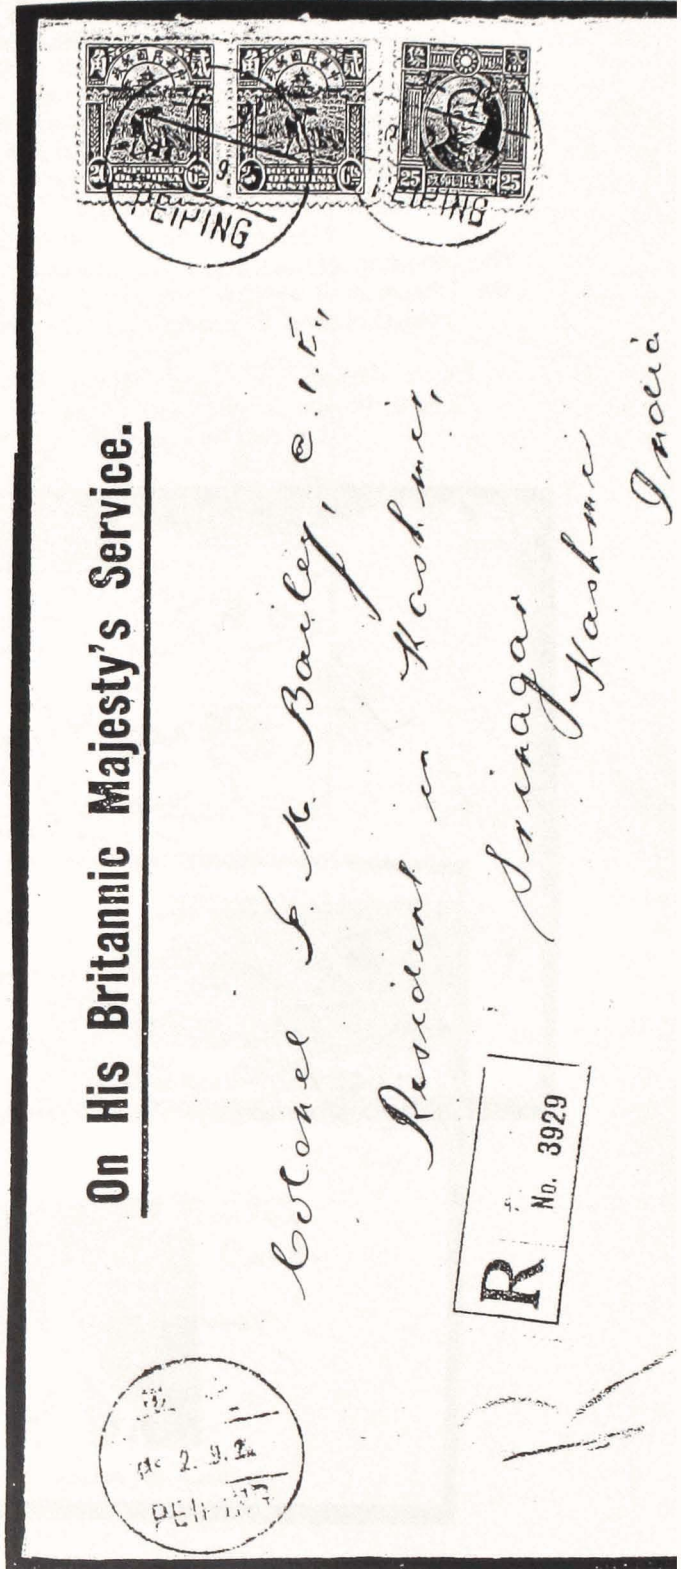 On His Britannic Majesty's Service.
Colonel F. M. Bailey, C.I.E.,
Resident in Kashmir,
Srinagar
Kashmir
India
R
No. 3929
PEIPING
PEIPING
PEIPING
貳 政郵國民華中 角
貳 政郵國民華中 角
20
25
25